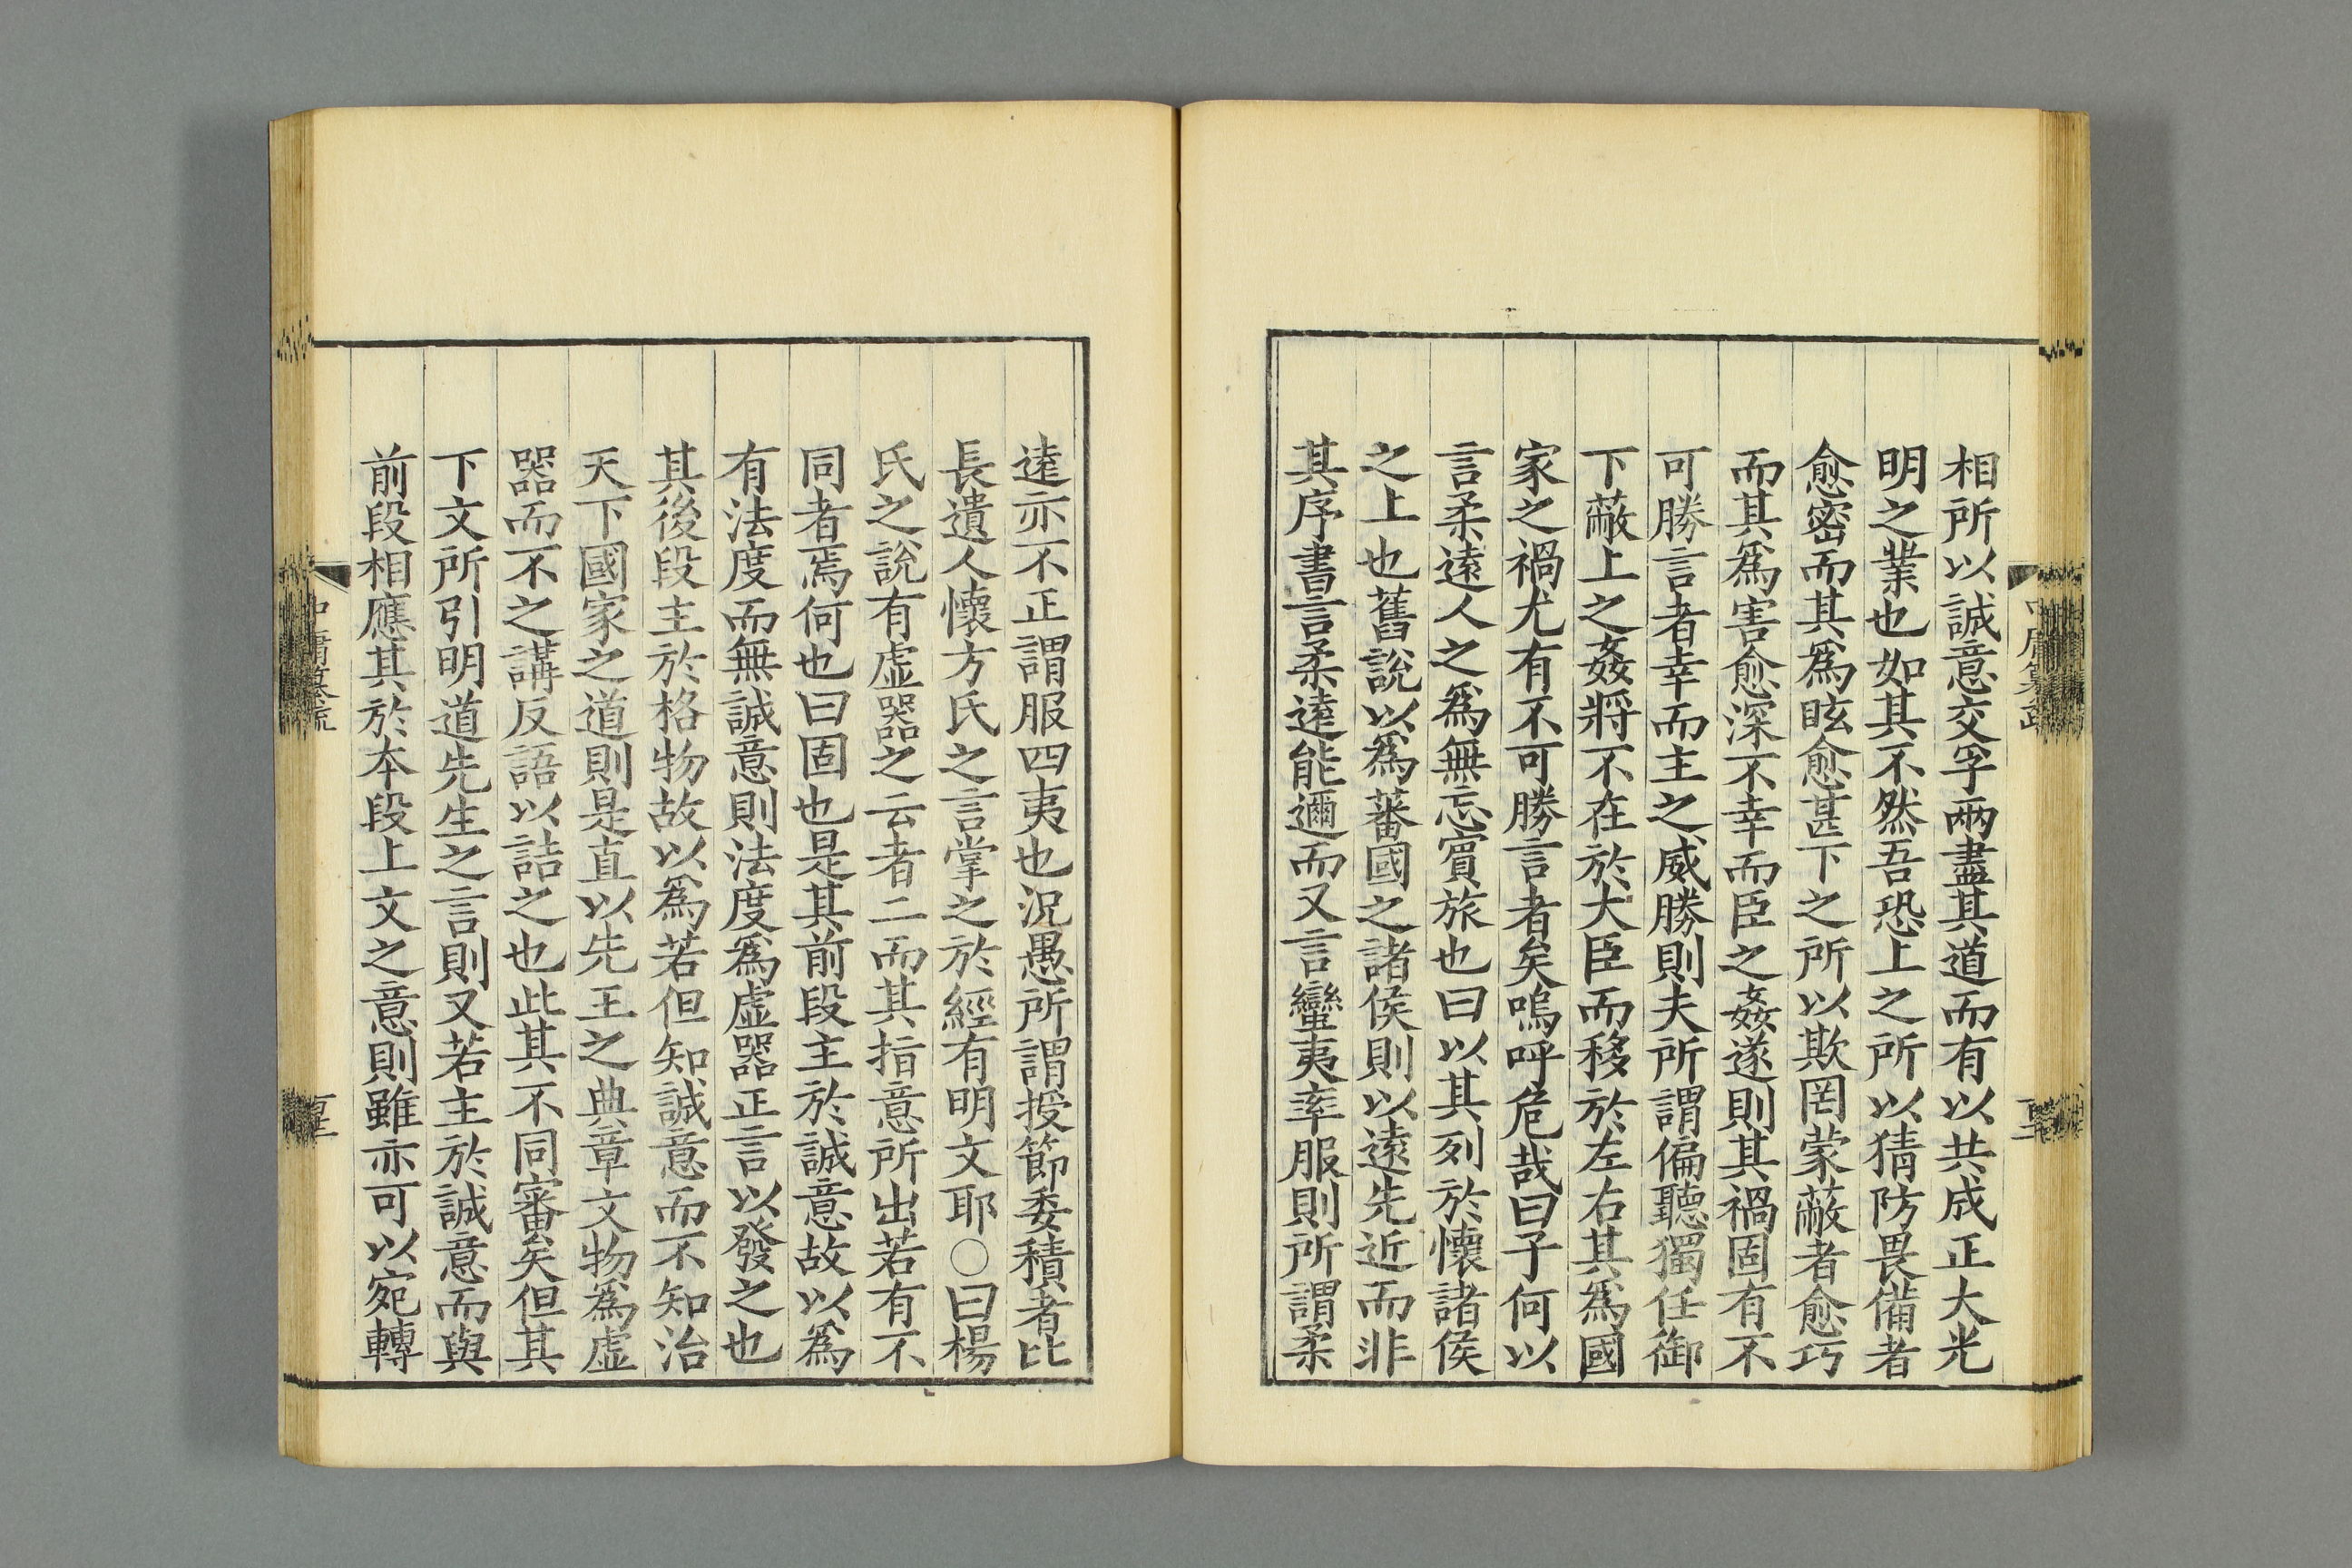 相所以誠意交孚兩盡其道而有以共成正大光
明之業也如其不然吾恐上之所以猜防畏備者
愈密而其爲眩愈甚下之所以欺罔蒙蔽者愈巧
而其爲害愈深不幸而臣之姦遂則其禍固有不
可勝言者幸而主之威勝則夫所謂偏聽獨任御
下蔽上之姦將不在於大臣而移於左右其爲國
家之禍尤有不可勝言者矣嗚呼危哉曰子何以
言柔遠人之爲無忘賓旅也曰以其列於懷諸侯
之上也舊說以爲蕃國之諸侯則以遠先近而非
其序書言柔遠能邇而又言蠻夷率服則所謂柔
遠亦不正謂服四夷也況愚所謂授節委積者比
長遺人懷方氏之言掌之於經有明文耶○曰楊
氏之說有虛器之云者二而其指意所出若有不
同者焉何也曰固也是其前段主於誠意故以爲
有法度而無誠意則法度爲虛器正言以發之也
其後段主於格物故以爲若但知誠意而不知治
天下國家之道則是直以先王之典章文物爲虛
器而不之講反語以詰之也此其不同審矣但其
下文所引明道先生之言則又若主於誠意而與
前段相應其於本段上文之意則雖亦可以宛轉
中庸纂疏